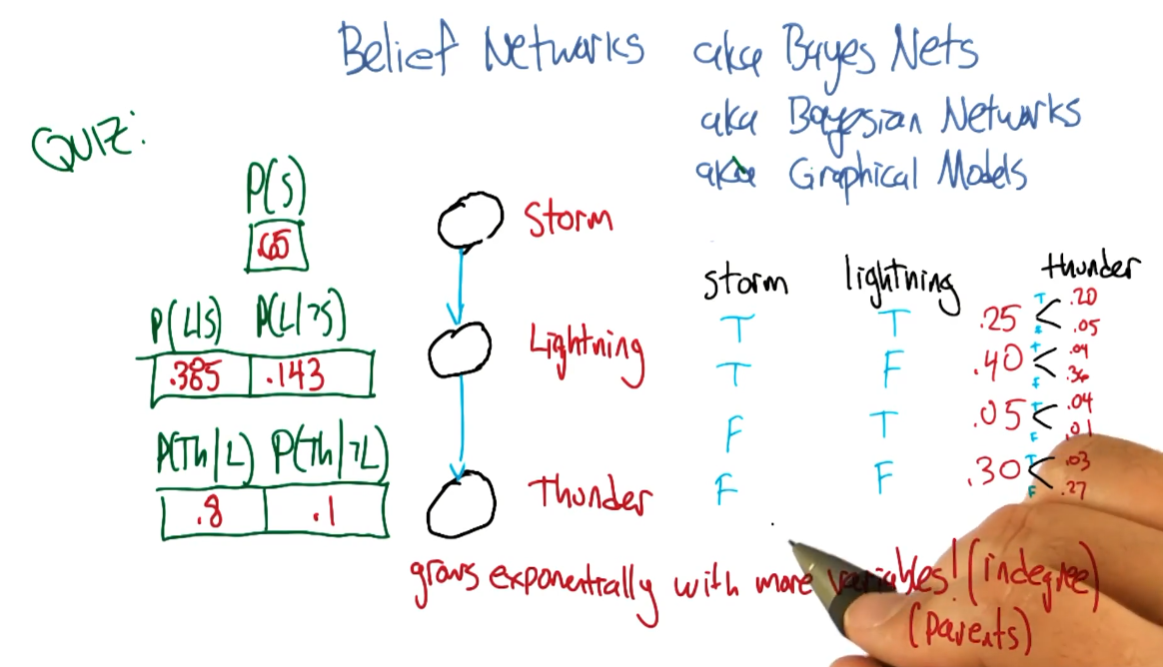 Belief Networks aka Bayes Nets
aka Bayesian Networks
aka Graphical Models
QUIZ:
P(S)
.65
P(L|S) P(L|¬S)
.385 .143
P(Th|L) P(Th|¬L)
.8 .1
Storm
Lightning
Thunder
storm lightning thunder
T T .25 T .20
F .05
T F .40 T .04
F .36
F T .05 T .04
F .01
F F .30 T .03
F .27
grows exponentially with more variables! (indegree)
(parents)